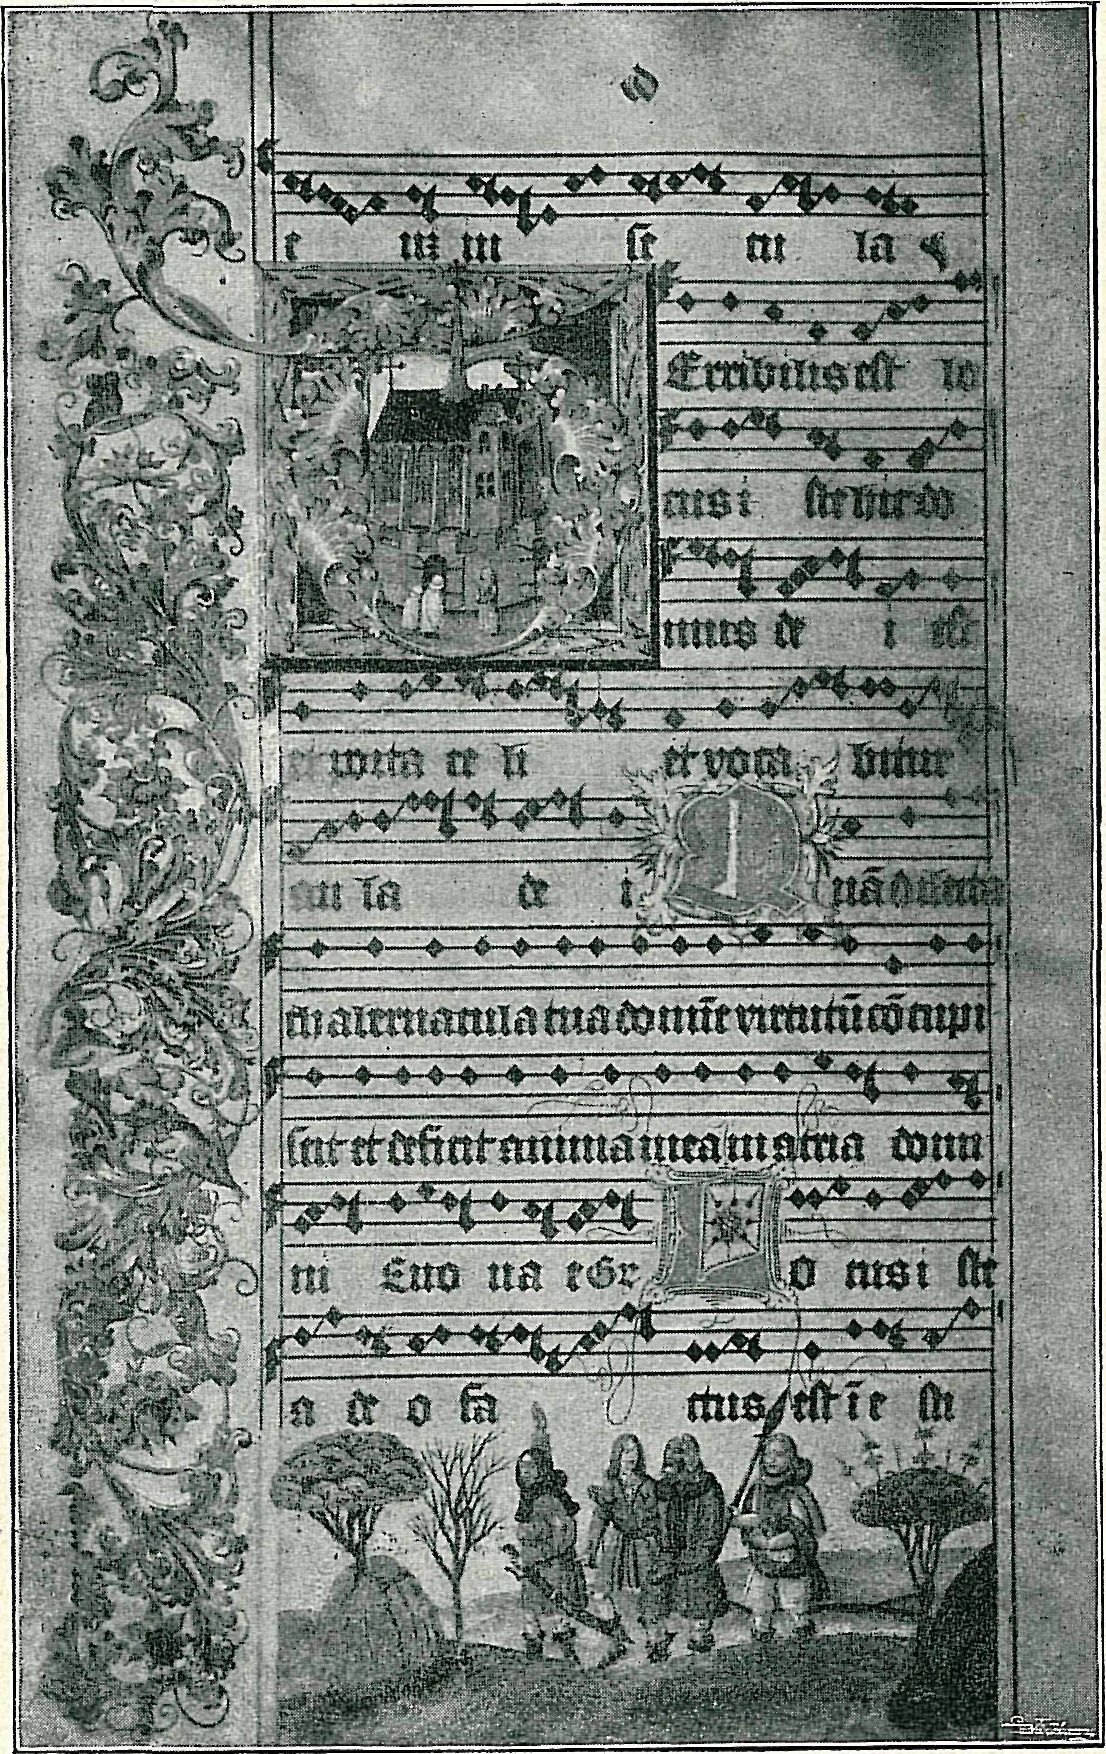 e in se cu la
Erribilis est lo
cus i ste hic do
mus de i est
et porta ce li et voca bitur
au la de i Quā dilecta
ta tabernacula tua domīe virtutū cōcupi
scit et deficit anima mea in atria domi
ni Euo ua e Gr Lo cus i ste
a de o fā ctus est ī e sti